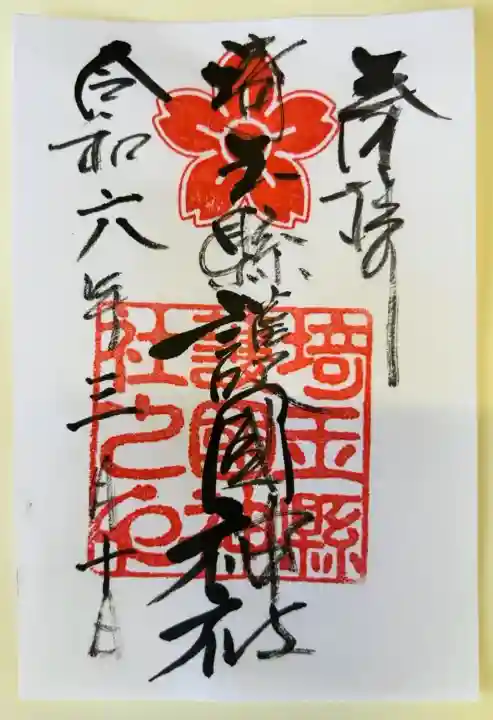 奉拝
埼玉縣護國神社
令和六年三月十日
埼玉縣
護國神
社之印